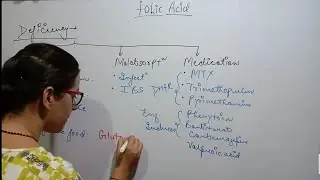 Folic Acid
Deficiency
Malabsorptⁿ
Medication
• Infectⁿ
• MTX
• IBS
DHFR
• Trimethoprim
• Pyrimethamine
Enz
Phenytoin
Inducer
Barbiturate
Carbamazepine
Valproic acid
food
Glut